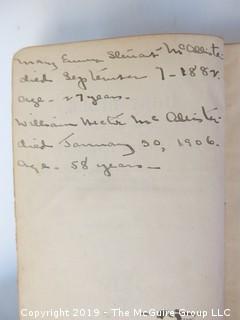 Mary Emma Stewart McAllister
died September 7 - 1882
age - 27 years -
William Victor McAllister
died January 30, 1906.
Age - 58 years -
Copyright 2019 - The McGuire Group LLC